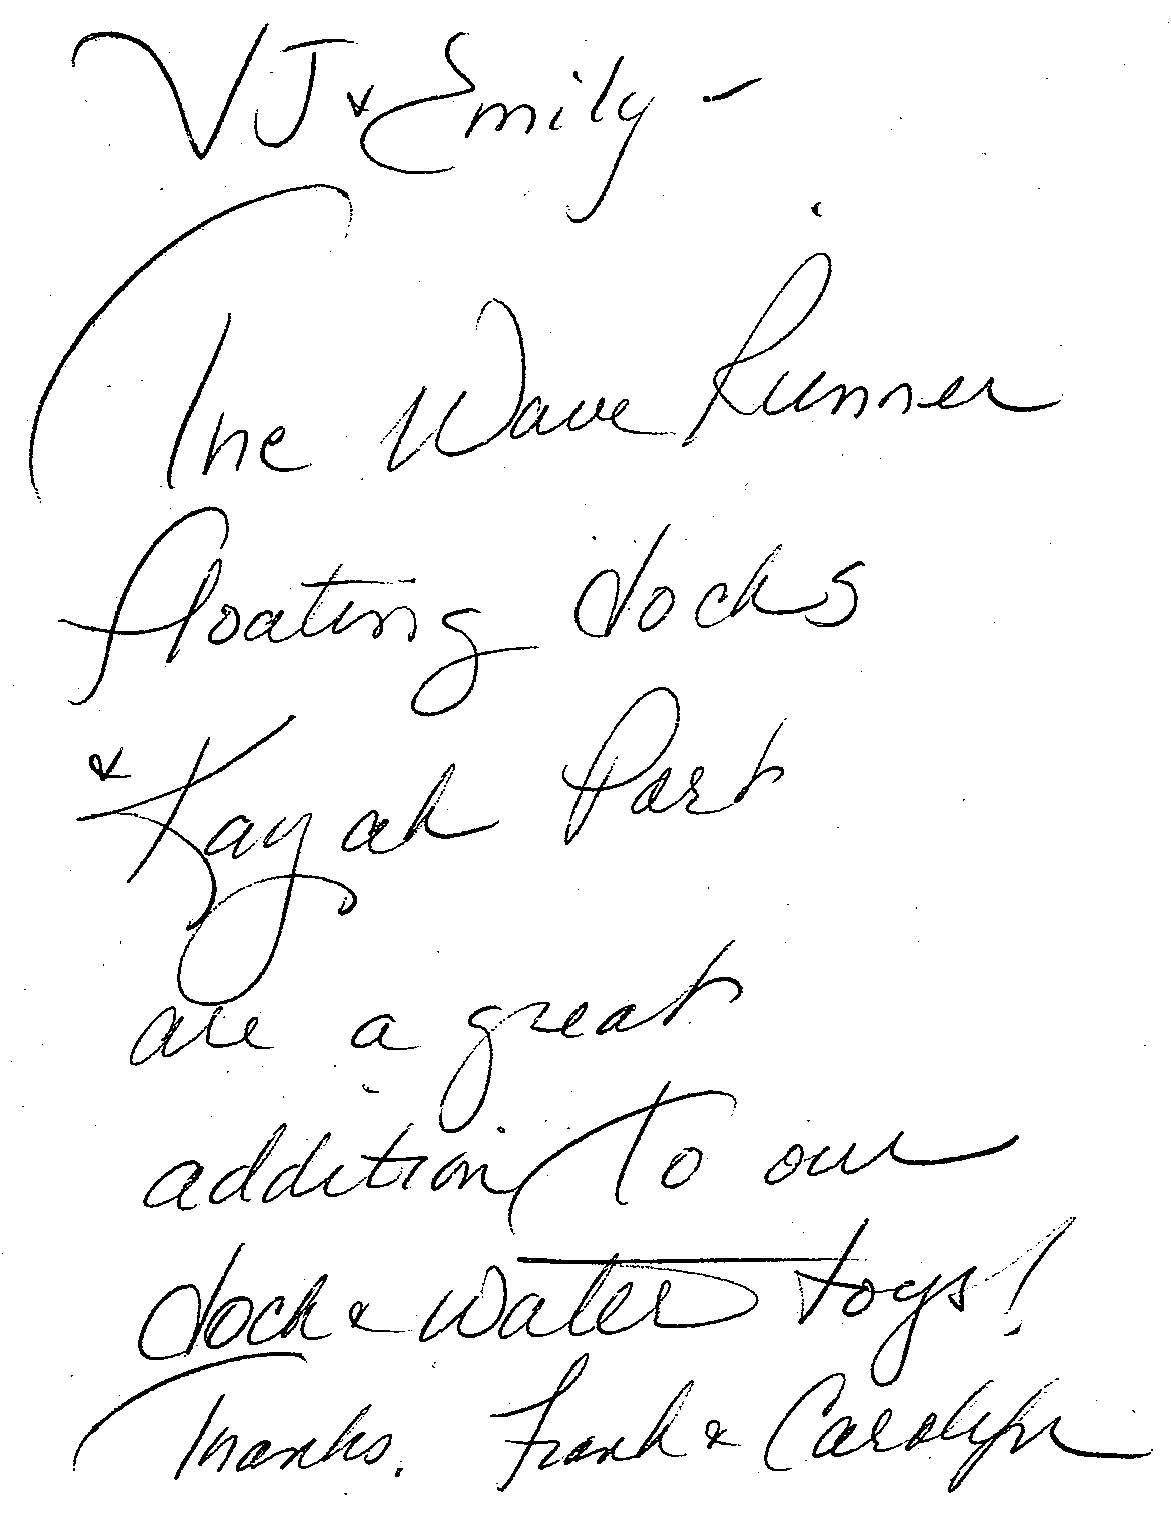 VJ & Emily -
The Wave Runner
floating docks
& Kayak Port
are a great
addition to our
dock & water toys!
Thanks. Frank & Carolyn